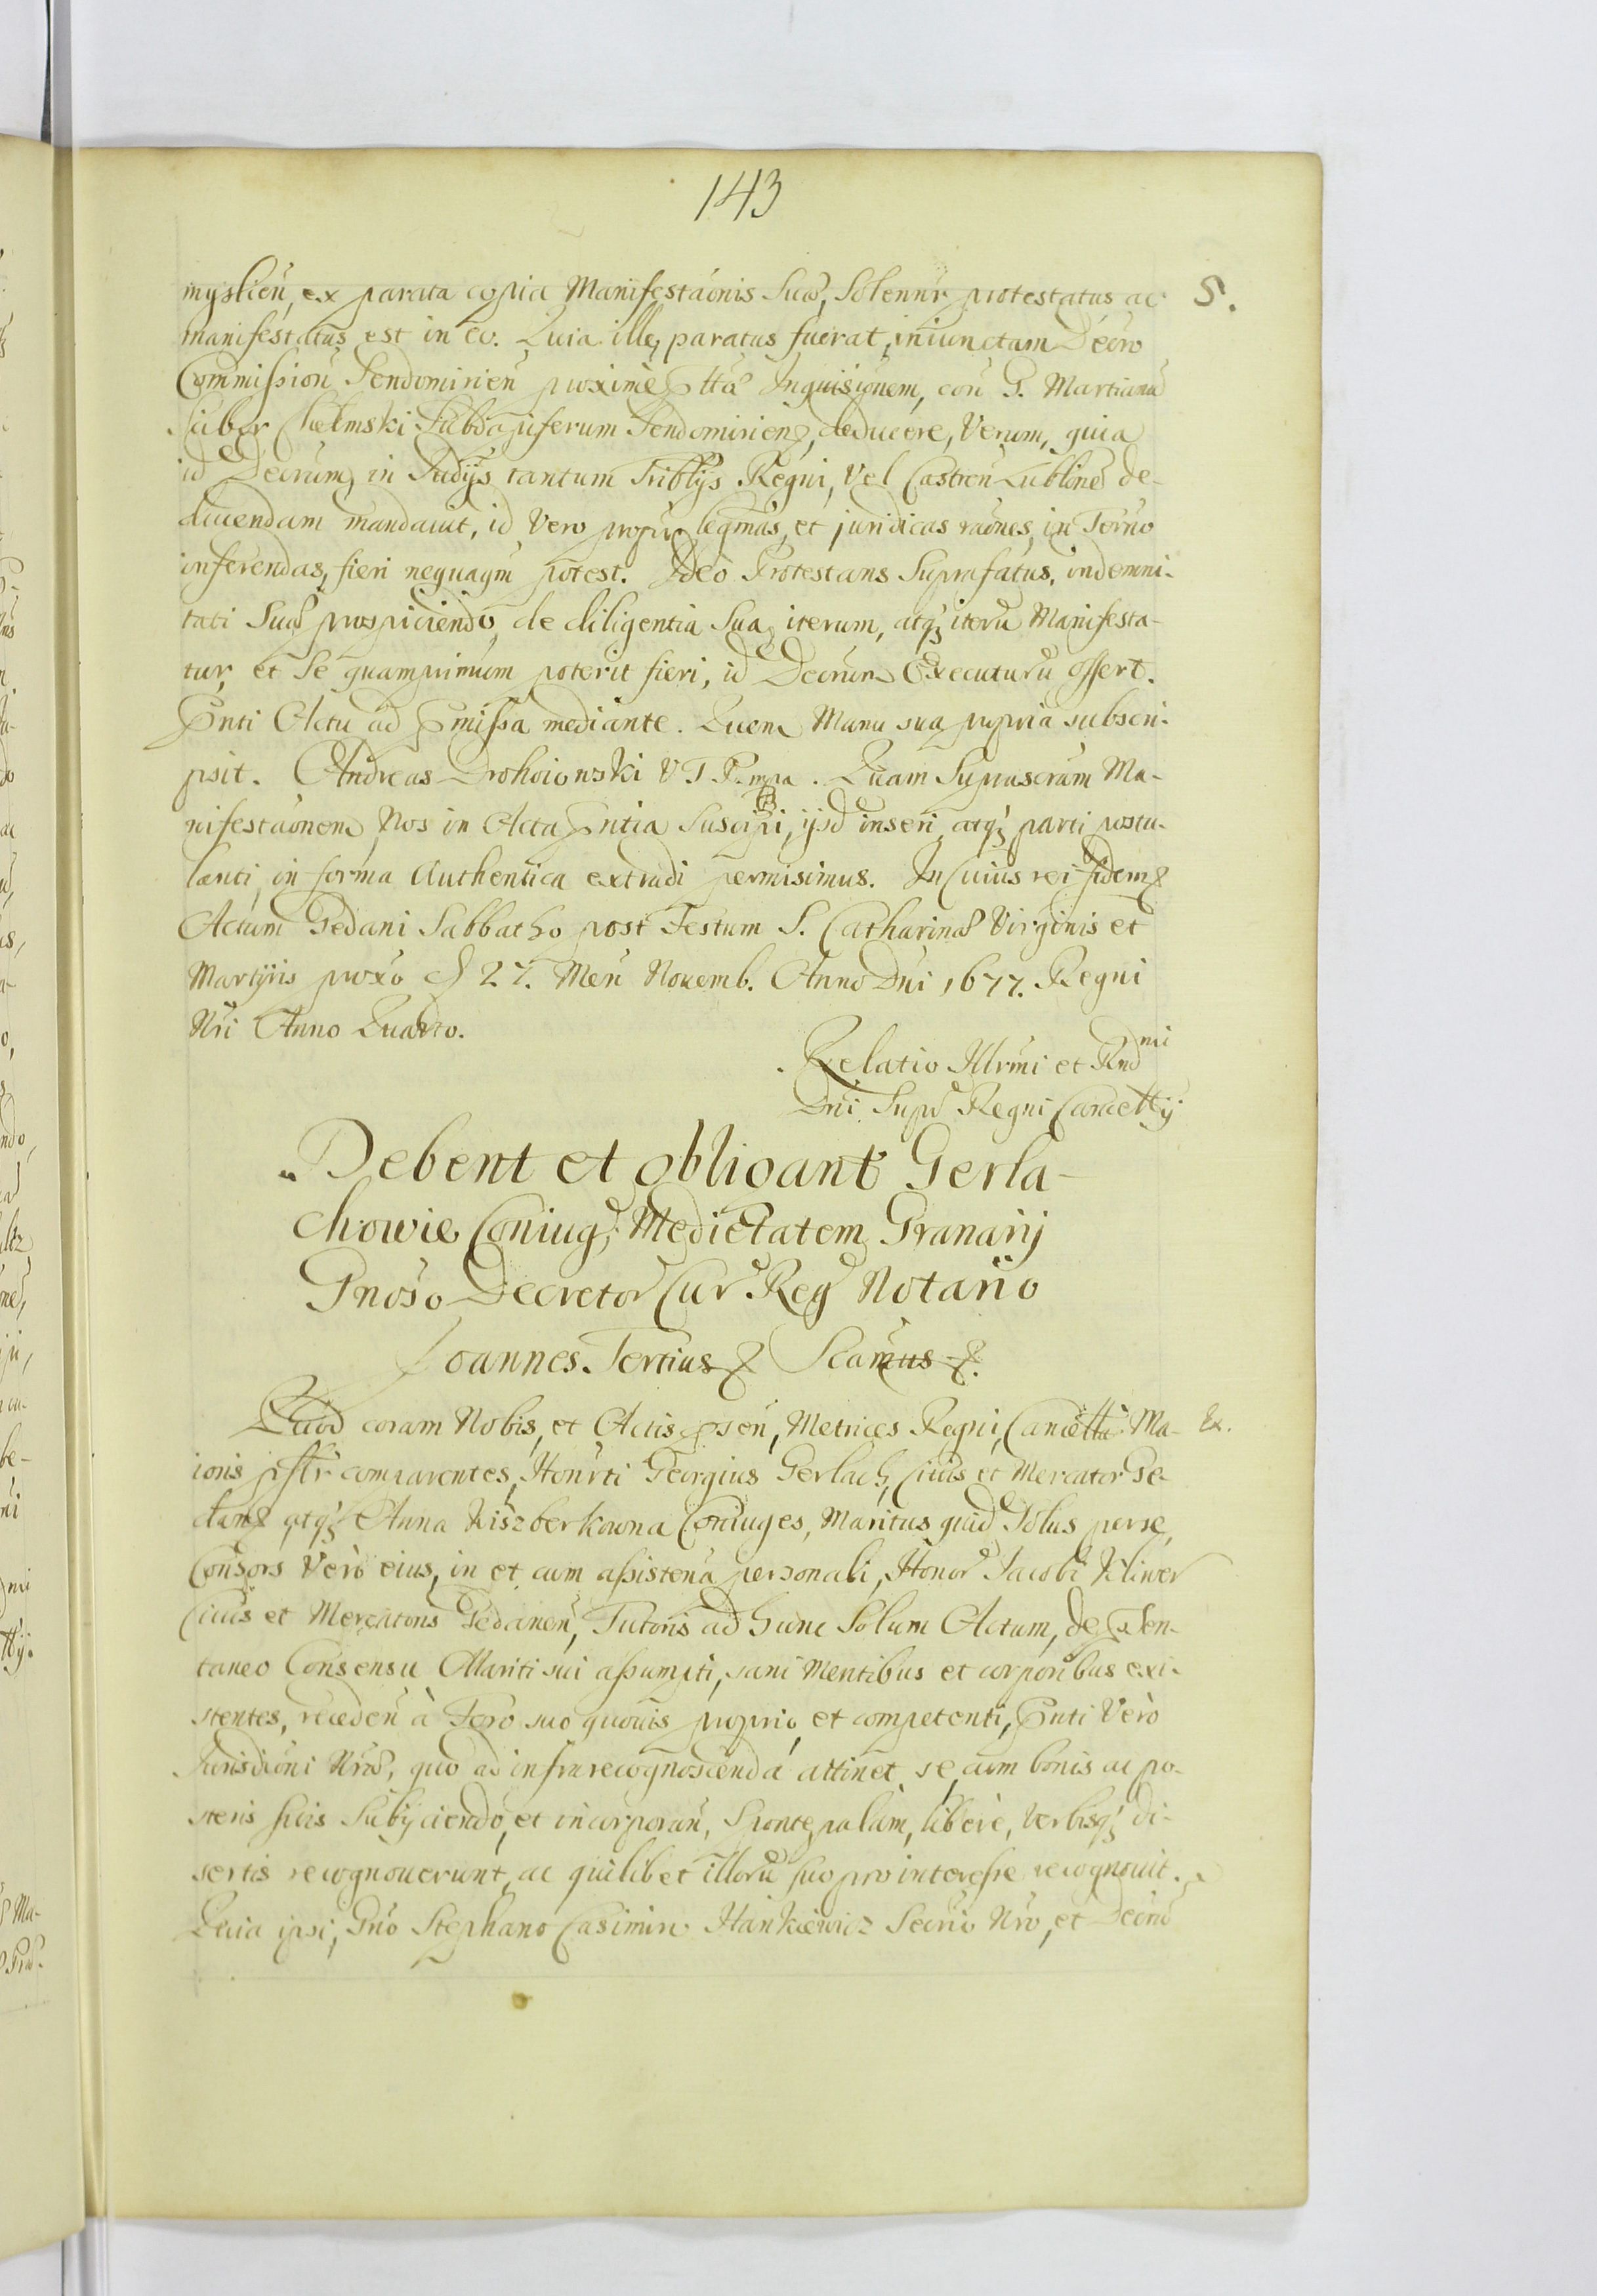 143
myslien, ex parata copia Manifestaonis Suae, Solennr protestatus ac S.
manifestatus est in eo. Quia ille, paratus fuerat, iniunctam Decro
Commission Sendomirien proxime Inquisionem, con G. Martianu
Scibor Chełmski Subdapiferum Sendomirien, deducere, Verum, quia
id Decrum in Judijs tantum Triblijs Regni, Vel Castren Lubline de-
ducendam mandauit, id Vero propr legmas, et juridicas raones, in Terno
inferendas, fieri nequaqm potest. Ideo Protestans Suprafatus, indemni-
tati Suae prospiciendo, de diligentia Sua iterum, atq iteru Manifesta-
tur, et Se quamprimum poterit fieri, id Decrum Executuru offert.
Pnti Actu ad Pmissa mediante. Quem Manu sua propria subscri-
psit. Andreas Drohoiowski V T P. mpa. Quam Suprascram Ma-
nifestaonem Nos in Acta Pntia Suscipi, ijsd inseri, atq parti postu-
lanti, in forma Authentica extradi permisimus. In Cuius rei fidem
Actum Gedani Sabbatho post Festum S. Catharinae Virginis et
Martyris proxo d 27. Men Nouemb. Anno Dni 1677. Regni
Nri Anno Quarto.
Relatio Illrmi et Rndmi
Dni Supr Regni Cancellij
Debent et obligant Gerla-
chowie Coniug, Medietatem Granarij
Gnoso Decretor Cur Reg Notario
Joannes Tertius Scamus
Quod coram Nobis, et Actis psen, Metrices Regni, Cancella Ma- Ex.
ioris pslr comparentes, Honrti Georgius Gerlach, Ciuis et Mercator Ge-
dan, atq Anna Kiszberkowna Coniuges, Maritus quid Solus perse,
Consors Vero eius, in et cum assistena personali, Honor Jacobi Kliwer
Ciuis et Mercatoris Gedanen, Tutoris ad hunc Solum Actum, de Psen-
taneo Consensu Mariti sui assumpti, sani Mentibus et corporibus exi-
stentes, receden à Foro suo quouis proprio, et competenti, Pnti Verò
Jurisdioni Nrae, quo ad infra recognoscenda attinet, se, cum bonis ac po-
steris suis Subijciendo, et incorporan, Sponte, palàm, liberè, Verbisq di-
sertis recognouerunt, ac quilibet illoru suo pro interesse recognouit.
Quia ipsi, Gno Stephano Casimiro Hankiewicz Secrio Nro, et Decrm